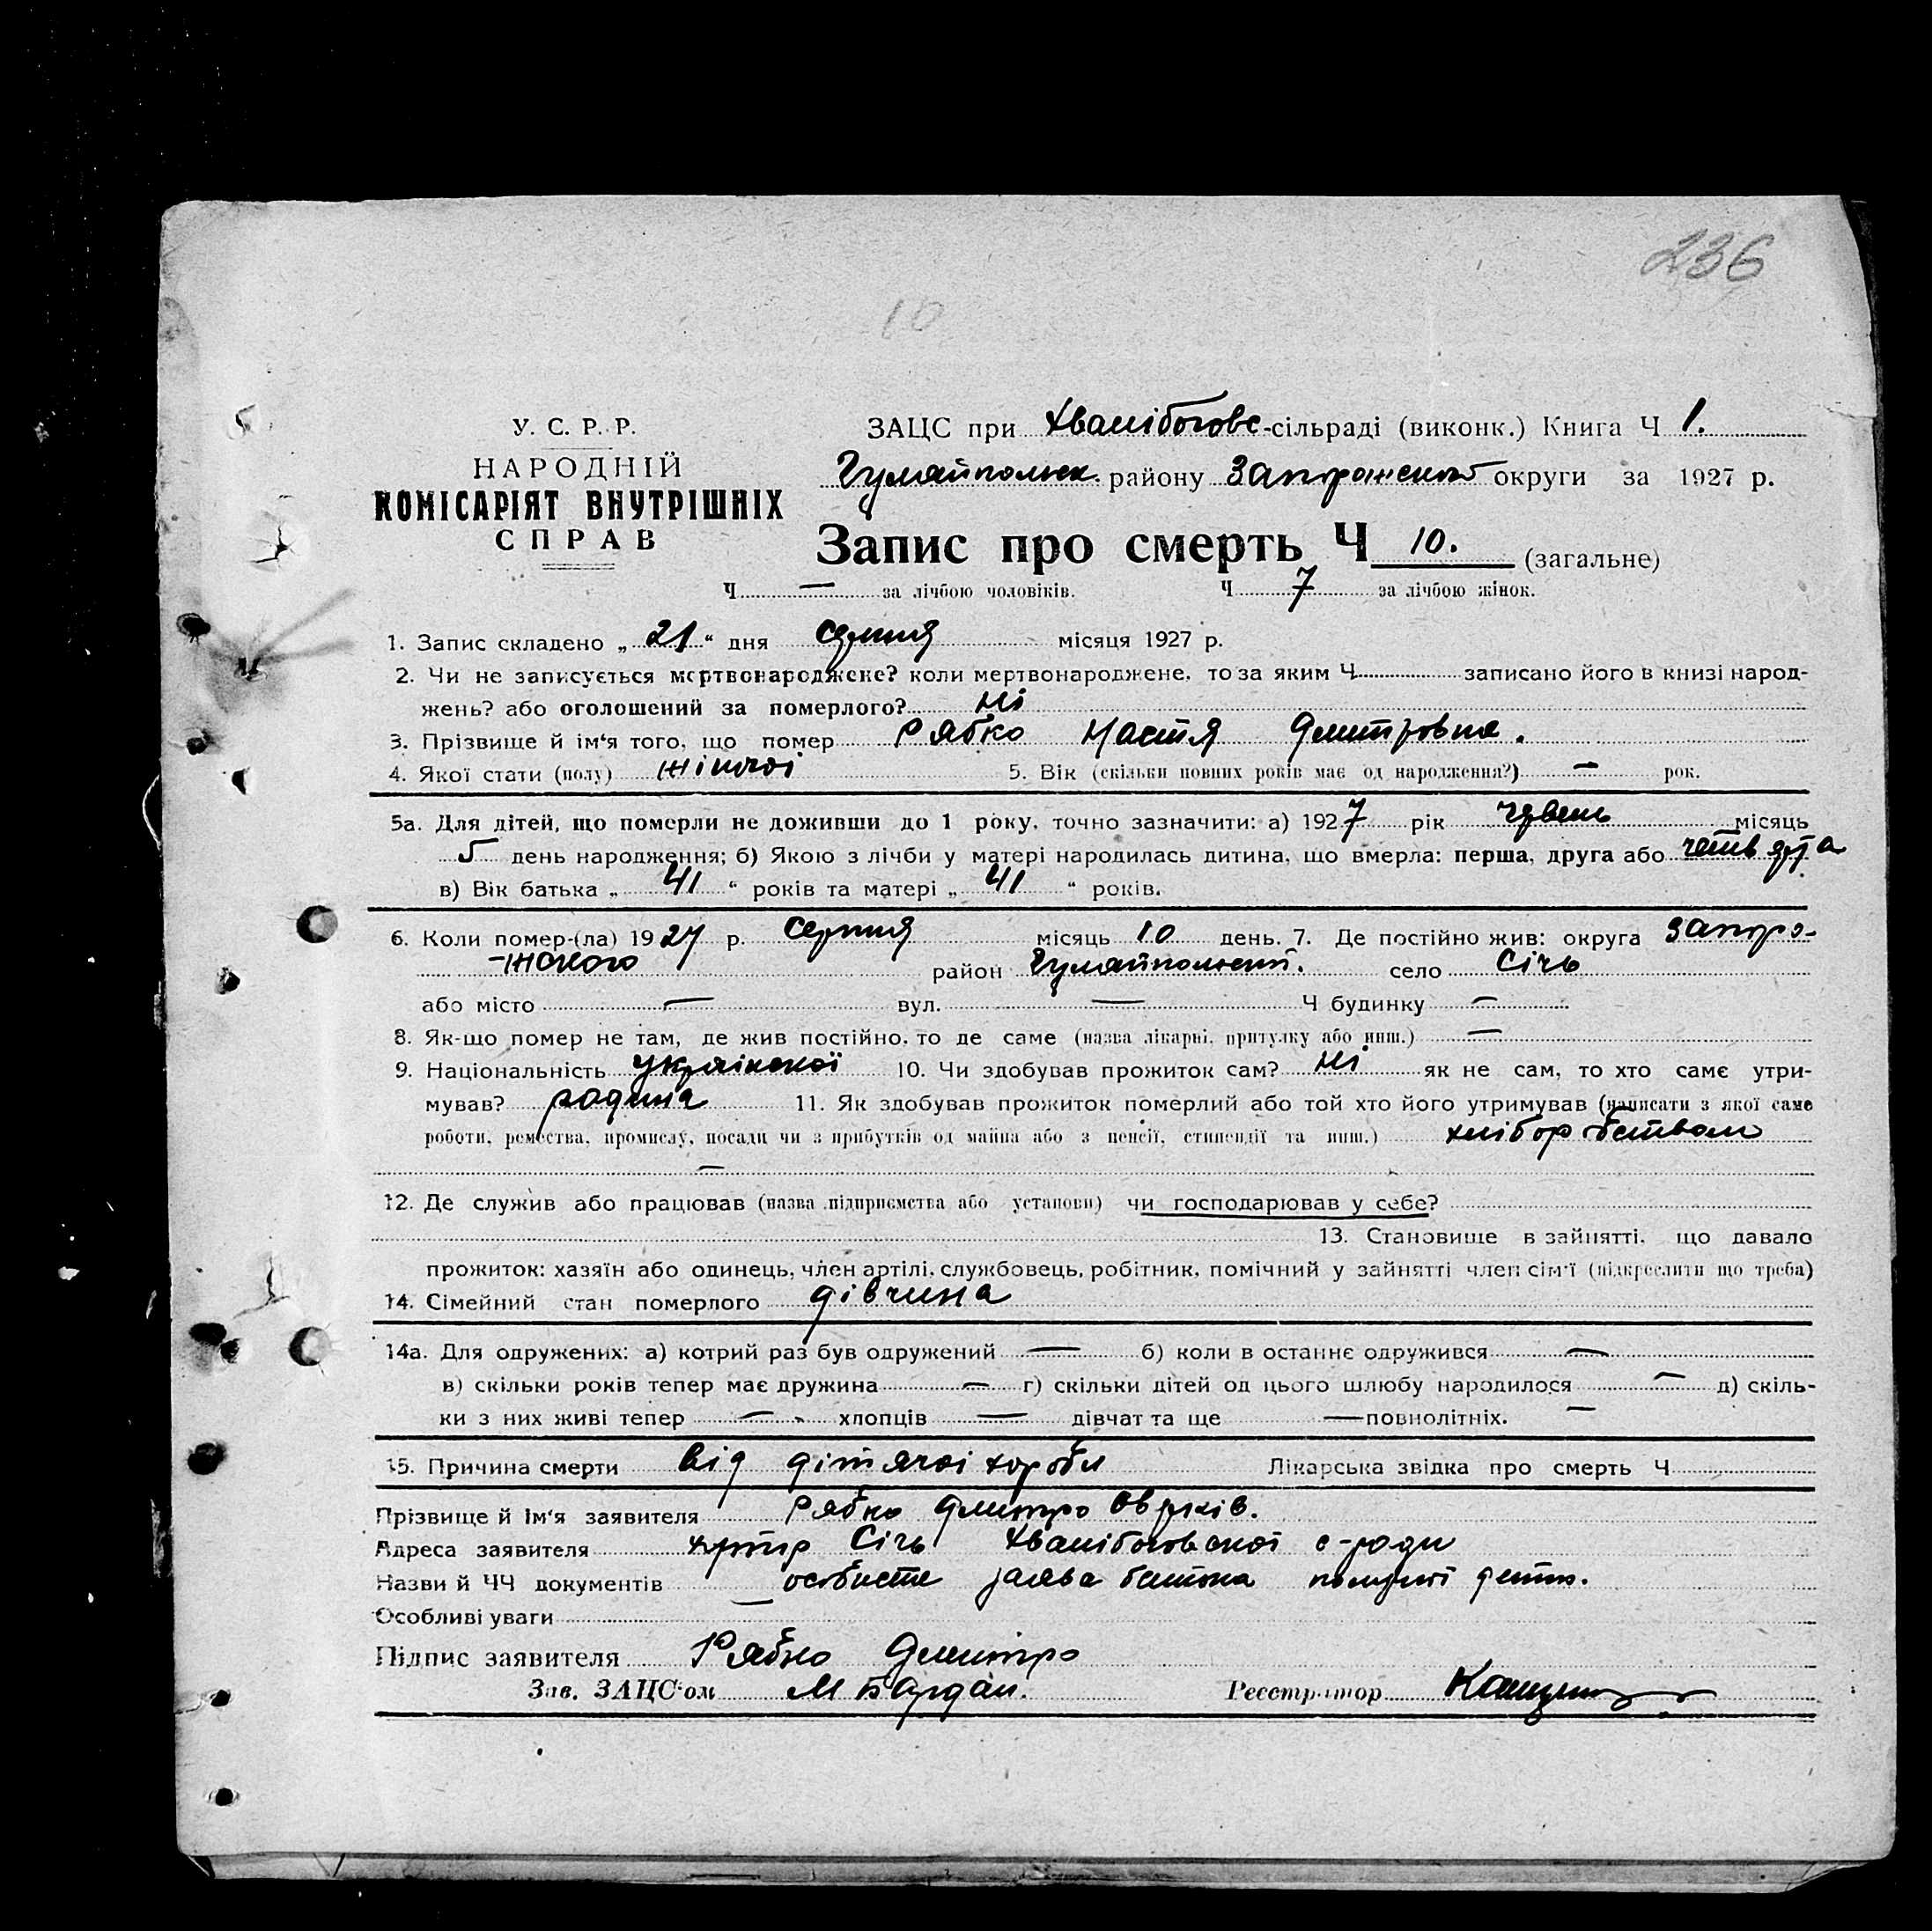 236
10
У. С. Р. Р.
НАРОДНІЙ
КОМІСАРІЯТ ВНУТРІШНІХ
СПРАВ
ЗАЦС при Хвалібогове-сільраді (виконк.) Книга Ч 1.
Гуляйпольск. району Запорожской округи за 1927 р.
Запис про смерть Ч 10. (загальне)
Ч — за лічбою чоловіків. Ч 7 за лічбою жінок.
1. Запис складено „ 21 “ дня серпня місяця 1927 р.
2. Чи не записується мертвонароджене? коли мертвонароджене, то за яким Ч записано його в книзі народ-
жень? або оголошений за померлого? Ні
3. Прізвище й ім‘я того, що помер Рябко Настя Дмитровна.
4. Якої стати (полу) жіночі 5. Вік (скільки повних років має од народження?) — рок.
5а. Для дітей, що померли не доживши до 1 року, точно зазначити: а) 1927 рік червень місяць
5 день народження; б) Якою з лічби у матері народилась дитина, що вмерла: перша, друга або четверта
в) Вік батька „ 41 “ років та матері „ 41 “ років.
6. Коли помер-(ла) 1927 р. серпня місяць 10 день. 7. Де постійно жив: округа Запоро-
-жского район Гуляйпольськ. село Січь
або місто — вул. — Ч будинку —
8. Як-що помер не там, де жив постійно, то де саме (назва лікарні, притулку або инш.) —
9. Національність українскої 10. Чи здобував прожиток сам? Ні як не сам, то хто саме утри-
мував? родина 11. Як здобував прожиток померлий або той хто його утримував (написати з якої саме
роботи, ремества, промислу, посади чи з прибутків од майна або з пенсії, стипендії та инш.) хліборобством
—
12. Де служив або працював (назва підприємства або установи) чи господарював у себе?
13. Становище в зайнятті, що давало
прожиток: хазяїн або одинець, член артілі, службовець, робітник, помічний у зайнятті член сім‘ї (підкреслити що треба)
14. Сімейний стан померлого дівчина
14а. Для одружених: а) котрий раз був одружений — б) коли в останнє одружився —
в) скільки років тепер має дружина — г) скільки дітей од цього шлюбу народилося — д) скіль-
ки з них живі тепер — хлопців — дівчат та ще — повнолітніх. —
15. Причина смерти від дітячої хороби Лікарська звідка про смерть Ч
Прізвище й Ім‘я заявителя Рябко Дмитро
Адреса заявителя хутір Січь Хвалібоговської с-ради
Назви й ЧЧ документів особисте заява батька
Особливі уваги —
Підпис заявителя Рябко Дмитро
Зав. ЗАЦС‘ом М Бардан. Реєстратор